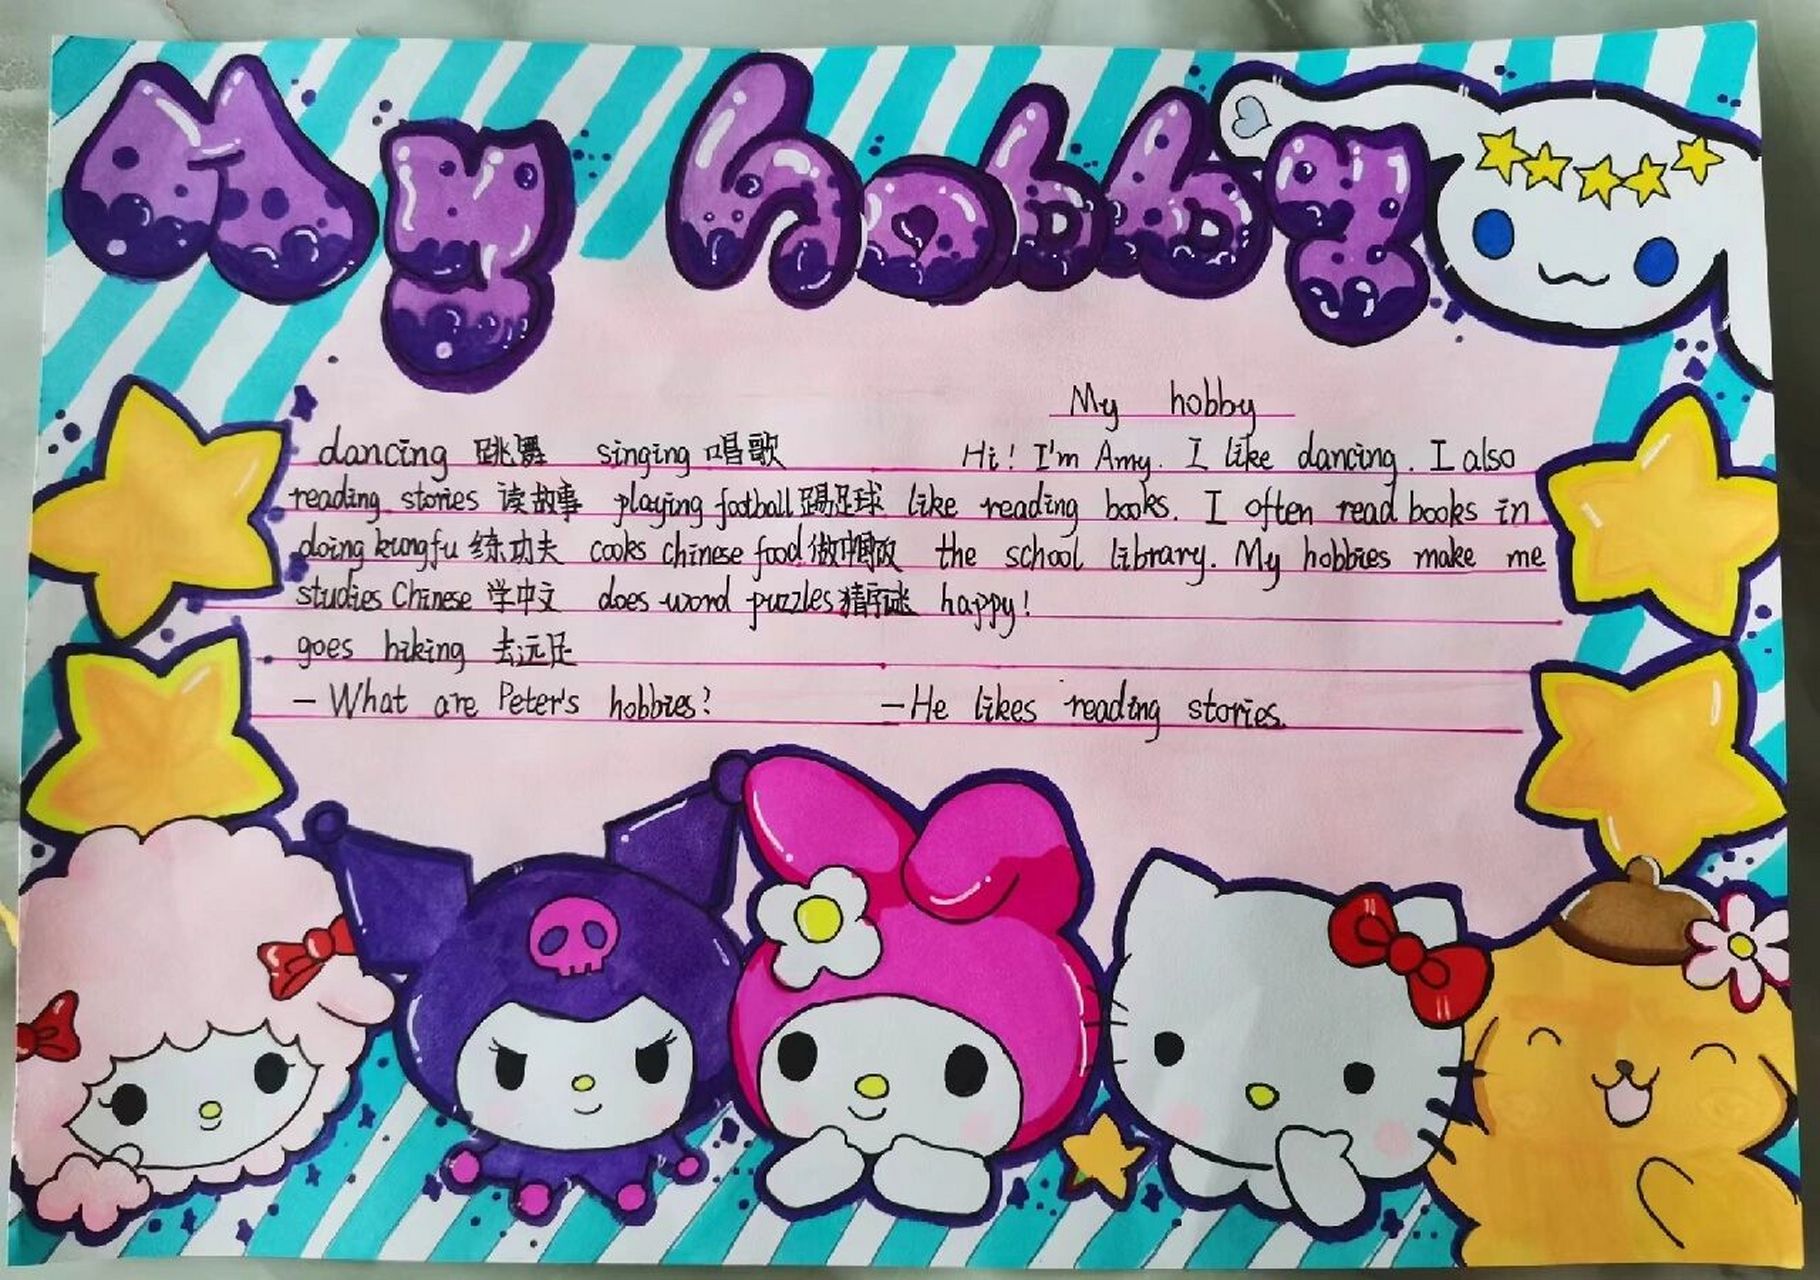 My hobby
My hobby
dancing 跳舞 singing 唱歌
reading stories 读故事 playing football 踢足球
doing kungfu 练功夫 cooks chinese food 做中国饭
studies Chinese 学中文 does word puzzles 猜字谜
goes hiking 去远足
Hi! I'm Amy. I like dancing. I also
like reading books. I often read books in
the school library. My hobbies make me
happy!
- What are Peter's hobbies? - He likes reading stories.